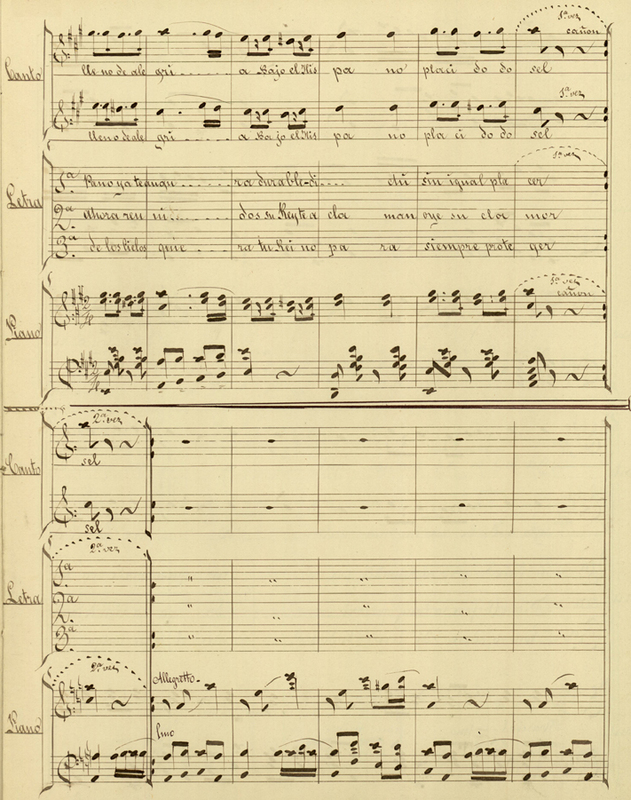 1ª vez
cañon
Canto
lleno de ale gri a Bajo el His pa no placi do do sel
1ª vez
lleno de ale gri a Bajo el His pa no pla ci do do sel
1ª vez
Letra
1ª ra durable di cha sin igual pla cer
2ª Ahora reu ni dos su Rey te a cla man oye su cla mor
3ª de los Cielos quie ra tu Rei no pa ra siempre prote ger
1ª vez
cañon
Piano
2ª vez
Canto
sel
sel
2ª vez
Letra
1ª
2ª
3ª
2ª vez
Allegretto
Piano
Pmo